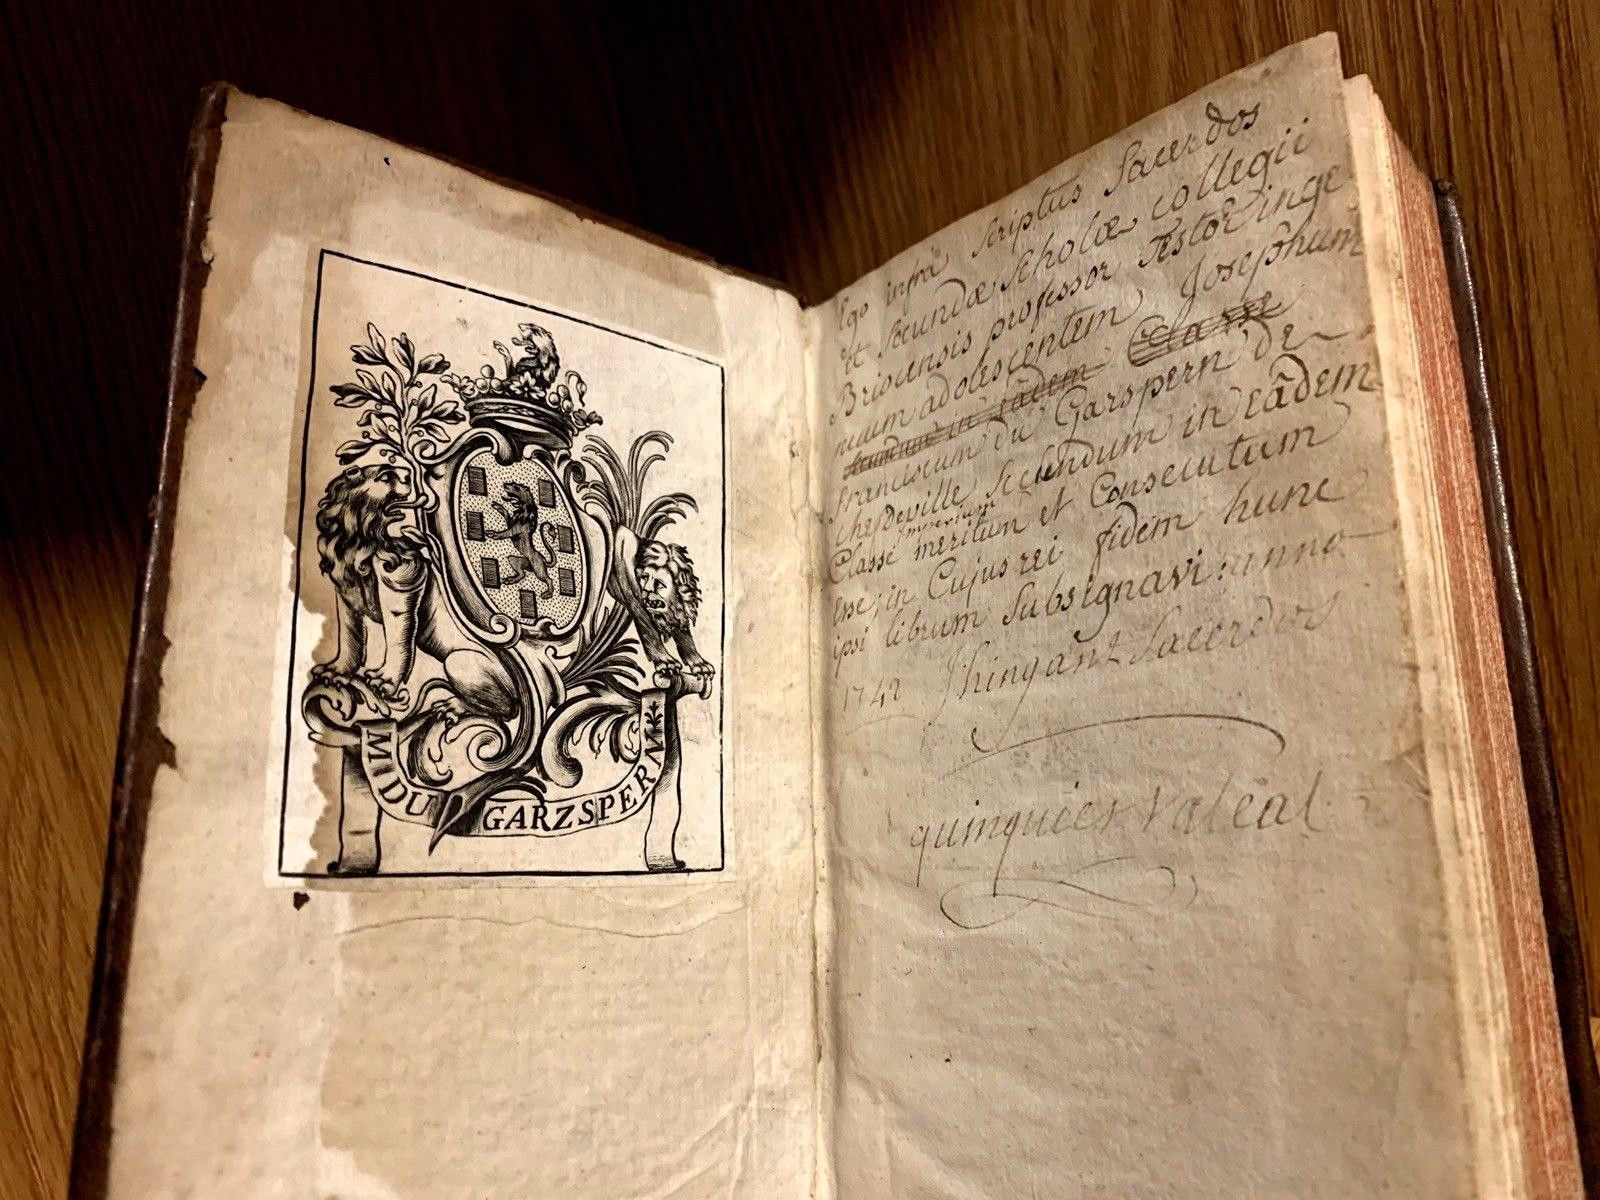 MIDU GARZSPERN
Ego infrà scriptus Sacerdos
et secundæ scholæ collegii
Briocensis professor testor inge
nuum adolescentem Josephum
in eâdem Classe
franciscum du Garspern de
chefdeville secundum in eâdem
Classi præmium meritum et Consecutum
esse; in Cujus rei fidem hunc
ipsi librum Subsignavi: anno
1742 Jhingant Sacerdos
quinquies valeat